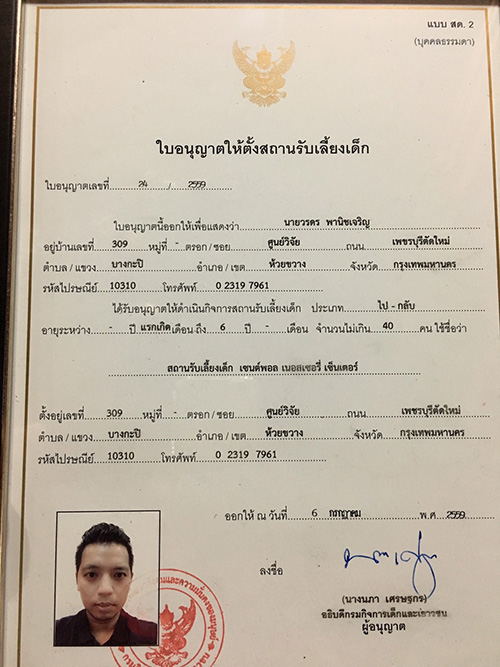 แบบ สด. 2
(บุคคลธรรมดา)
ใบอนุญาตให้ตั้งสถานรับเลี้ยงเด็ก
ใบอนุญาตเลขที่ 24 / 2559
ใบอนุญาตนี้ออกให้เพื่อแสดงว่า นายวรดร พานิชเจริญ
อยู่บ้านเลขที่ 309 หมู่ที่ - ตรอก / ซอย ศูนย์วิจัย ถนน เพชรบุรีตัดใหม่
ตำบล / แขวง บางกะปิ อำเภอ / เขต ห้วยขวาง จังหวัด กรุงเทพมหานคร
รหัสไปรษณีย์ 10310 โทรศัพท์ 0 2319 7961
ได้รับอนุญาตให้ดำเนินกิจการสถานรับเลี้ยงเด็ก ประเภท ไป - กลับ
อายุระหว่าง - ปี แรกเกิด เดือน ถึง 6 ปี - เดือน จำนวนไม่เกิน 40 คน ใช้ชื่อว่า
สถานรับเลี้ยงเด็ก เซนต์พอล เนอสเซอรี่ เซ็นเตอร์
ตั้งอยู่เลขที่ 309 หมู่ที่ - ตรอก / ซอย ศูนย์วิจัย ถนน เพชรบุรีตัดใหม่
ตำบล / แขวง บางกะปิ อำเภอ / เขต ห้วยขวาง จังหวัด กรุงเทพมหานคร
รหัสไปรษณีย์ 10310 โทรศัพท์ 0 2319 7961
ออกให้ ณ วันที่ 6 กรกฎาคม พ.ศ. 2559
ลงชื่อ
(นางนภา เศรษฐกร)
อธิบดีกรมกิจการเด็กและเยาวชน
ผู้อนุญาต